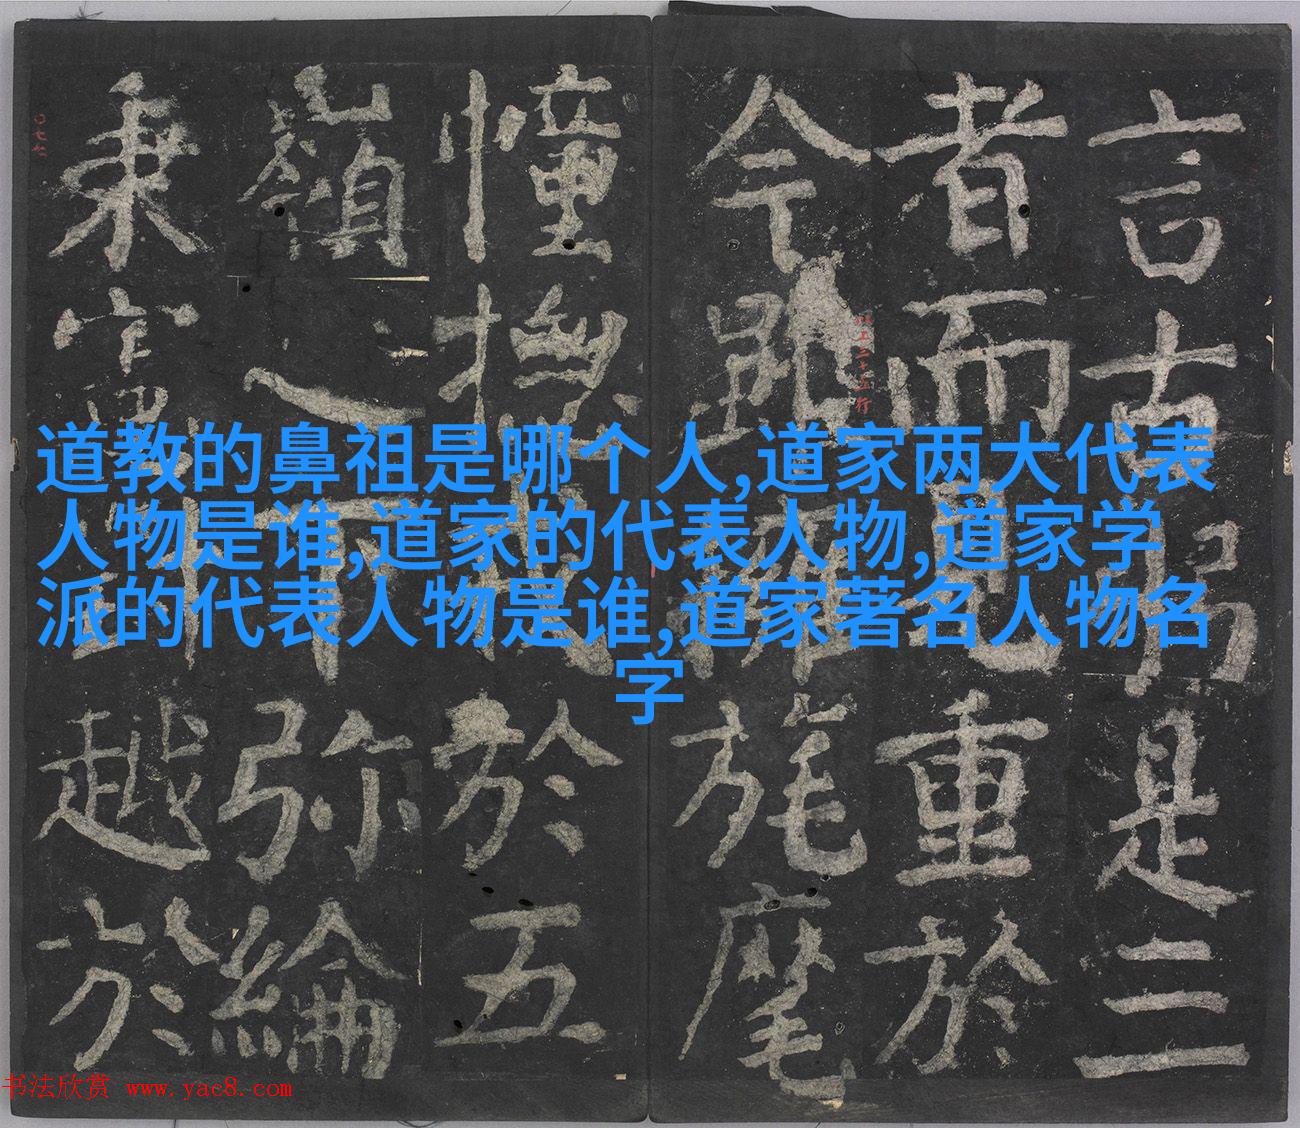 道教的鼻祖是哪个人,道家两大代表
人物是谁,道家的代表人物,道家学
派的代表人物是谁,道家著名人物名
字
言古是三
者而已重於
今旄麾
憧撫於五
嶺之下弥綸
秉越於
书法欣赏 www.yac8.com